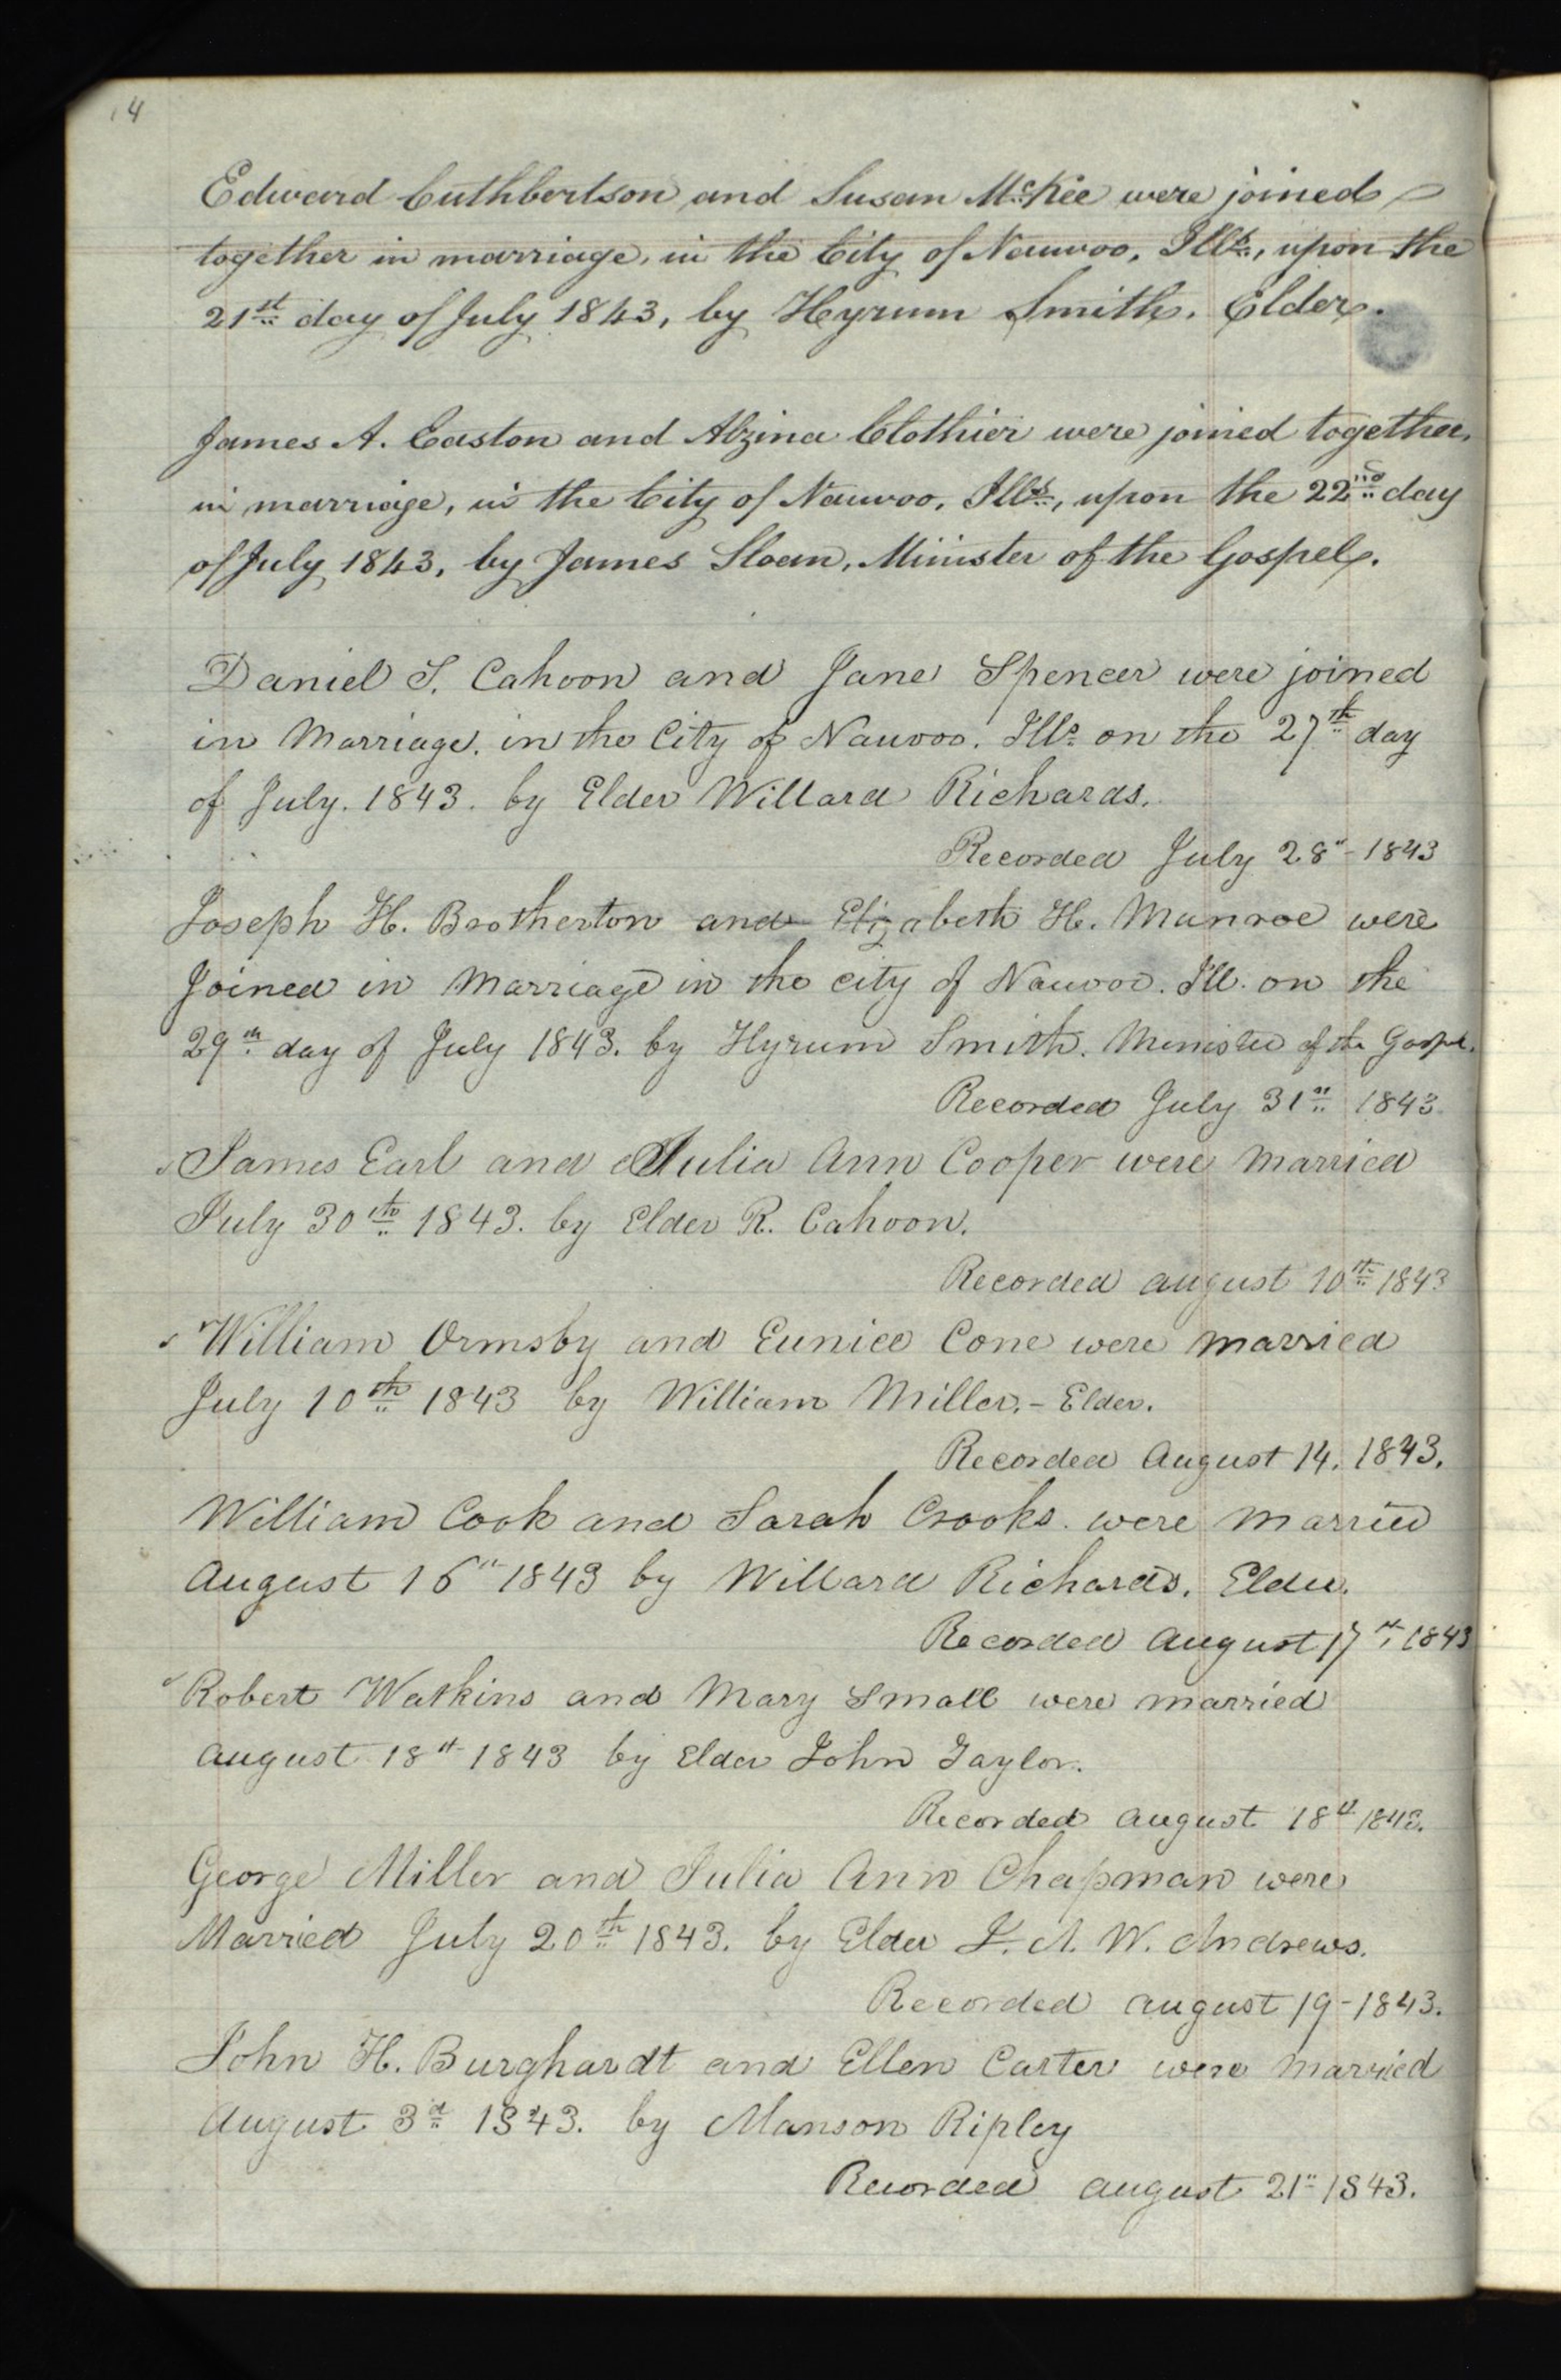 14
Edward Cuthbertson and Susan McKee were joined
together in marriage, in the City of Nauvoo, Ills., upon the
21st day of July 1843, by Hyrum Smith, Elder.
James A. Easton and Alzina Clothier were joined together,
in marriage, in the City of Nauvoo, Ills., upon the 22nd day
of July 1843, by James Sloan, Minister of the Gospel.
Daniel S. Cahoon and Jane Spencer were joined
in Marriage. in the City of Nauvoo. Ills. on the 27th day
of July. 1843. by Elder Willard Richards.
Recorded July 28"- 1843
Joseph H. Brotherton and Elizabeth H. Munroe were
Joined in Marriage in the city of Nauvoo. Ill. on the
29th day of July 1843. by Hyrum Smith. Minister of the Gospel.
Recorded July 31st 1843.
James Earl and Julia Ann Cooper were married
July 30th 1843. by Elder R. Cahoon.
Recorded august 10th 1843
William Ormsby and Eunice Cone were married
July 10th 1843 by William Miller.- Elder.
Recorded August 14. 1843.
William Cook and Sarah Crooks. were married
August 16"- 1843 by Willard Richards. Elder.
Recorded August 17th 1843
Robert Watkins and Mary Small were married
August 18th 1843 by Elder John Taylor.
Recorded august 18th 1843.
George Miller and Julia Ann Chapman were
Married July 20th 1843. by Elder A. W. Andrews.
Recorded august 19-1843.
John H. Burghardt and Ellen Carter were married
August 3d 1843. by Manson Ripley
Recorded august 21"- 1843.